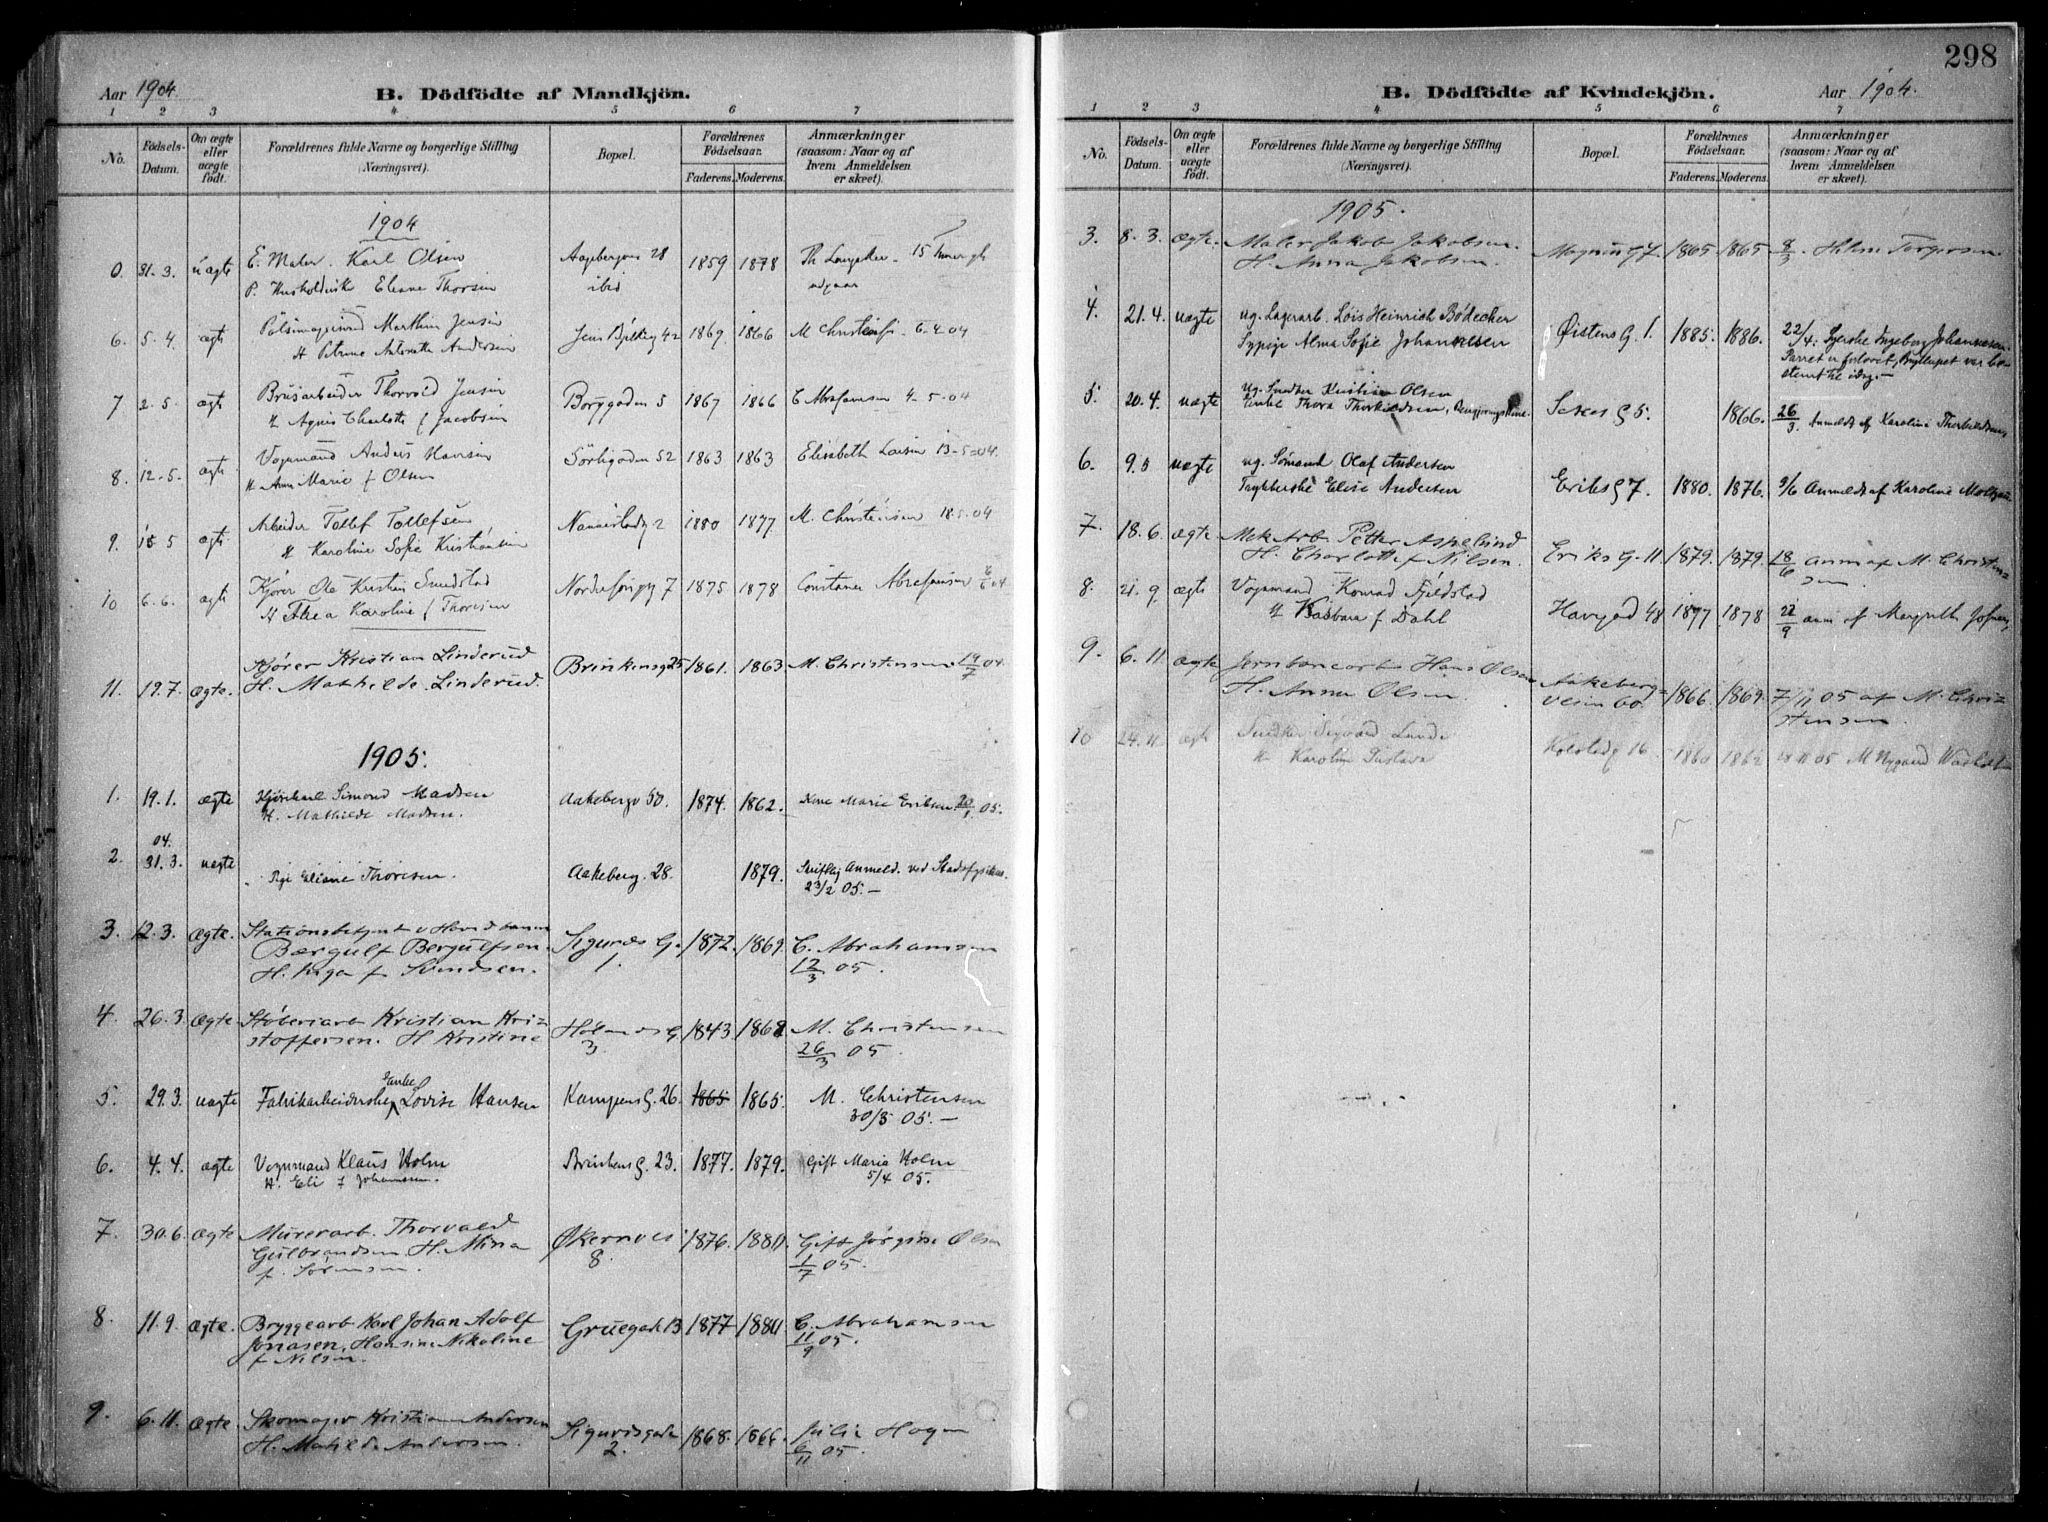 Aar 1904.
B. Dödfödte af Mandkjön.
1 2 3 4 5 6 7
No. Födsels-Datum. Om ægte eller uægte födt. Forældrenes fulde Navne og borgerlige Stilling (Næringsvei). Bopæl. Forældrenes Födselsaar. Faderens. Moderens. Anmærkninger (saasom: Naar og af hvem Anmeldelsen er skeet).
1904
0. 31.3. uægte E. Maler Karl Olsen Aagebergvn 28 1859 1878
P. Eleane Thorsen ibid
6. 5.4. ægte Marthin Jensen 1869 1866 M Christensen 6-4-04
H Petrine Antonette Andersen
7 2.5. ægte Brusarbeider Thorvald Jensen Borggaden 5 1867 1866 C Abrahamsen 4-5-04
H Agnes Charlotte f Jacobsen
8. 12.5. ægte Vognmand Anders Hansen Sörligaden 52 1863 1863 Elisabeth Larsen 13-5-04.
H Anna Marie f Olsen
9. 15 5 ægte Arbeider Tollef Tollefsen 2 1880 1877 M. Christensen 18.5.04
H Karoline Sofie Kristiansen
10 6.6. ægte Kjører Ole Kristian Sundstad 7 1875 1878 Constance Abrahamsen 6/6 04
H Thea Karoline f Thoresen
11. 19.7. ægte. Kjører Kristian Linderud Brinkensg 25 1861. 1863 M. Christensen 19/7 04.
H. Mathilde Linderud.
1905.
1. 19.1. ægte Kjørekarl Simond Madsen Aakebergv 50. 1874. 1862. Kone Marie Eriksen 20/1 05.
H. Mathilde Madsen.
2. 04. 31.3. uægte Pige Eliane Thoresen. Aakeberg. 28. 1879. Skriftlig Anmeld. ved Stadsfysikus.
23/2 05.-
3. 12.3. Ægte. Stationsbetjent v Hovedbanen Sigurds G. 1872. 1869. C. Abrahamsen
Bergulf Bergulfsen. 1. 12/3 05.
H. Inga f Svendsen.
4. 26.3. Ægte Støberiarb Kristian Kri- Holands G. 1843. 1868 M. Christensen
stoffersen. H Kristine 3. 26/3 05.
5. 29.3. uægte Fabrikarbeiderske Enke Lovise Hansen Kampens G. 26. 1865 1865. M. Christensen
30/3 05.-
6. 4.4. ægte Vognmand Klaus Holm Brinkens G. 23. 1877. 1879. Gift Maria Holm
H. Eli f Johannesen. 5/4 05.
7. 30.6. ægte Murerarb. Thorvald Økernvei 1876. 1880. Gift Jørgine Olsen
Gulbrandsen H. Mina 8. 1/7 05.
f. Sørensen.
8. 11.9. ægte. Bryggearb Karl Johan Adolf Gruegad 13 1877 1880. C. Abrahamsen
Jonasen, Hansine Nikoline 11/9 05.
f Nilsen.
9. 6.11. Ægte. Skomager Kristian Andersen Sigurdsgade 1868. 1866. Julie Hagen
H. Mathilde Andersen. 2. 6/11 05.
298
B. Dödfödte af Kvindekjön.
Aar 1904.
1 2 3 4 5 6 7
No. Födsels-Datum. Om ægte eller uægte födt. Forældrenes fulde Navne og borgerlige Stilling (Næringsvei). Bopæl. Forældrenes Födselsaar. Faderens. Moderens. Anmærkninger (saasom: Naar og af hvem Anmeldelsen er skeet).
1905.
3. 8.3. Ægte. Maler Jakob Jakobsen. Magnus G 7. 1865 1865 8/3 Helene Torgersen
H. Anna Jakobsen.
4. 21.4. uægte ug. Lagerarb. Lois Heinrich Bødecker Øistens G. 1. 1885. 1886. 22/4: Syerske Ingeborg Johannesen.
Sypige Alma Sofie Johannesen Parret er forlovet, Bryllupet var be-
stemt til idag.-
5. 20.4. uægte Ug. Snedker Kristian Olsen
Enke Thora Thorkildsen, Rengjøringskone. Seses G 5. 1866. 26/3. Anmeldt af Karoline Thorkildsen
6. 9.5 uægte ug. Sømand Olaf Andersen
Trykkerske Elise Andersen Eriks G 7. 1880. 1876. 9/6 Anmeldt af Karoline
7. 18.6. ægte Mek Arb Petter Aspelund
H. Charlotte f Nilsen. Eriks G. 11. 1879. 1879. 18/6 anm af M. Christen-
sen
8. 21. 9. ægte Vognmand Konrad Fjeldstad
H Barbara f Dahl Havegad 48 1877 1878 22/9 anm af Margreth
9. 6.11. ægte Jernbanearb Hans Olsen
H. Anna Olsen. Aakeberg-
veien 60. 1866. 1869. 7/11 05 af M. Chri-
stensen.
10 24.11 ægte Snedker Sigvard Lunde
H Karoline Gustava Kolstadg 16 1860 1862 28 11 05 M Nygaard